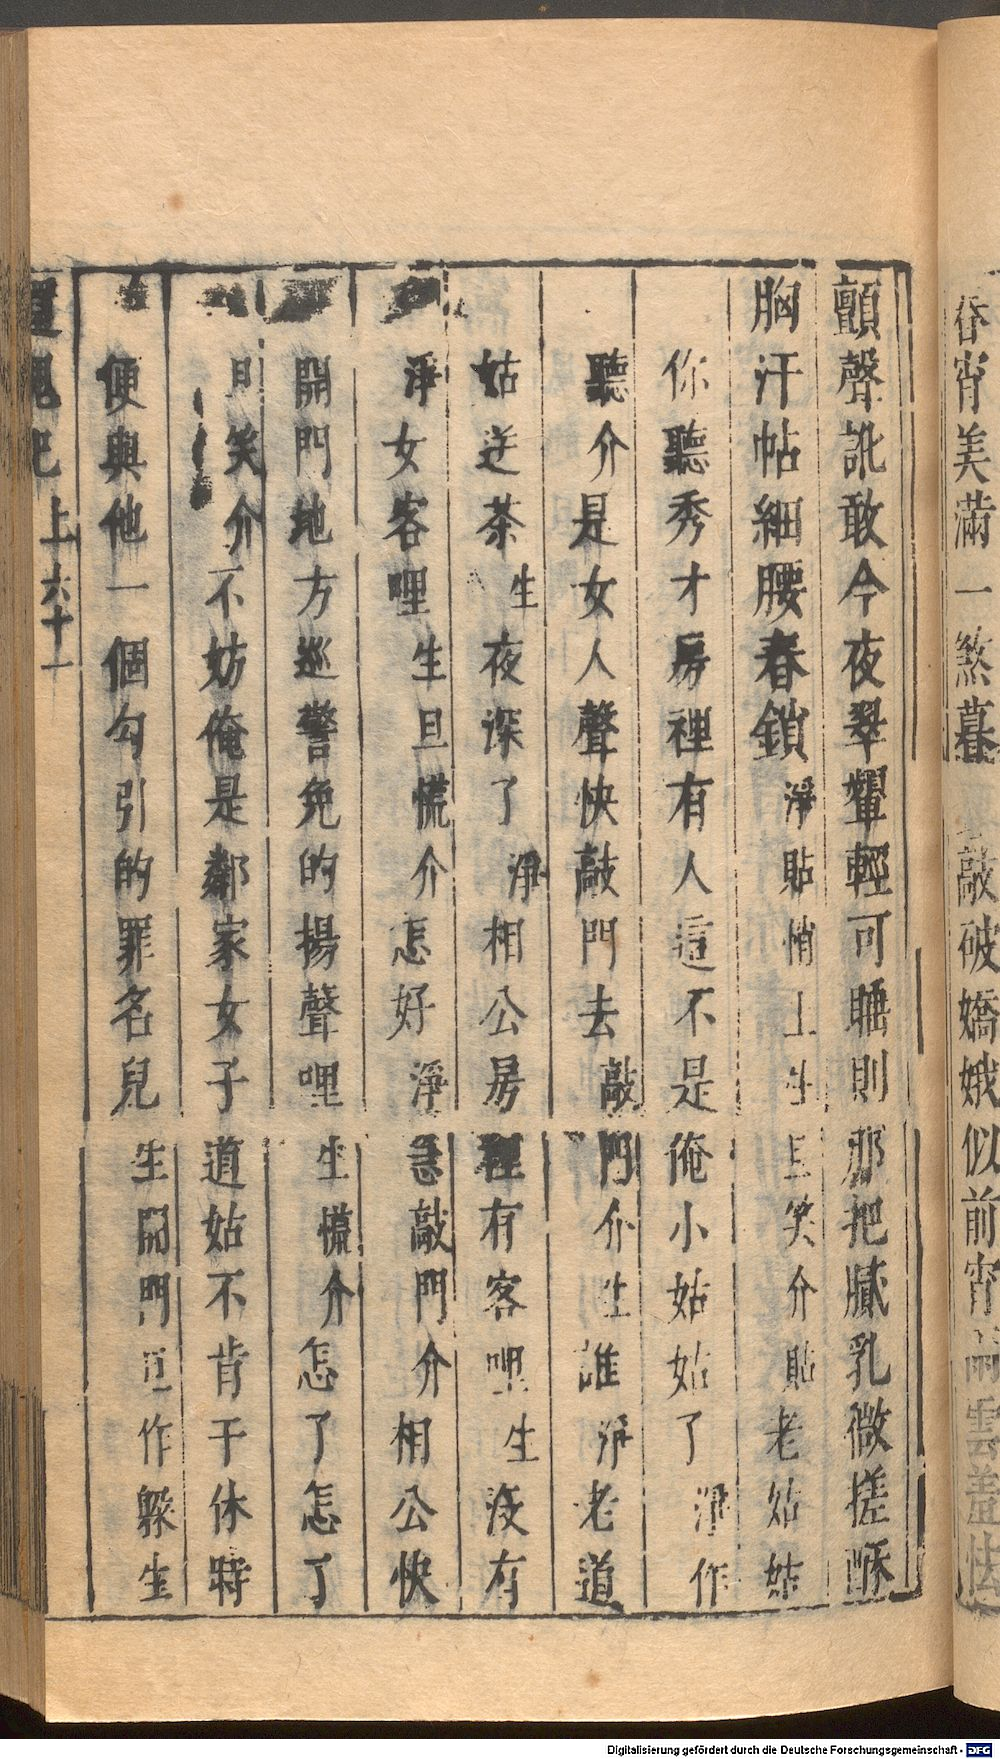 春宵美滿一煞暮敲破嬌娥似前宵雨雲羞怯
顫聲訛敢今夜翠顰輕可睡則那把膩乳微搓酥
胸汗帖細腰春鎖淨貼悄上生旦笑介貼老姑姑
你聽秀才房裡有人這不是俺小姑姑了淨作
聽介是女人聲快敲門去敲門介生誰淨老道
姑送茶生夜深了淨相公房裡有客哩生沒有
淨女客哩生旦慌介怎好淨急敲門介相公快
開門地方巡警免的揚聲哩生慌介怎了怎了
旦笑介不妨俺是鄰家女子道姑不肯干休時
便與他一個勾引的罪名兒生開門旦作躲生
還魂記 上六十一
Digitalisierung gefördert durch die Deutsche Forschungsgemeinschaft - DFG